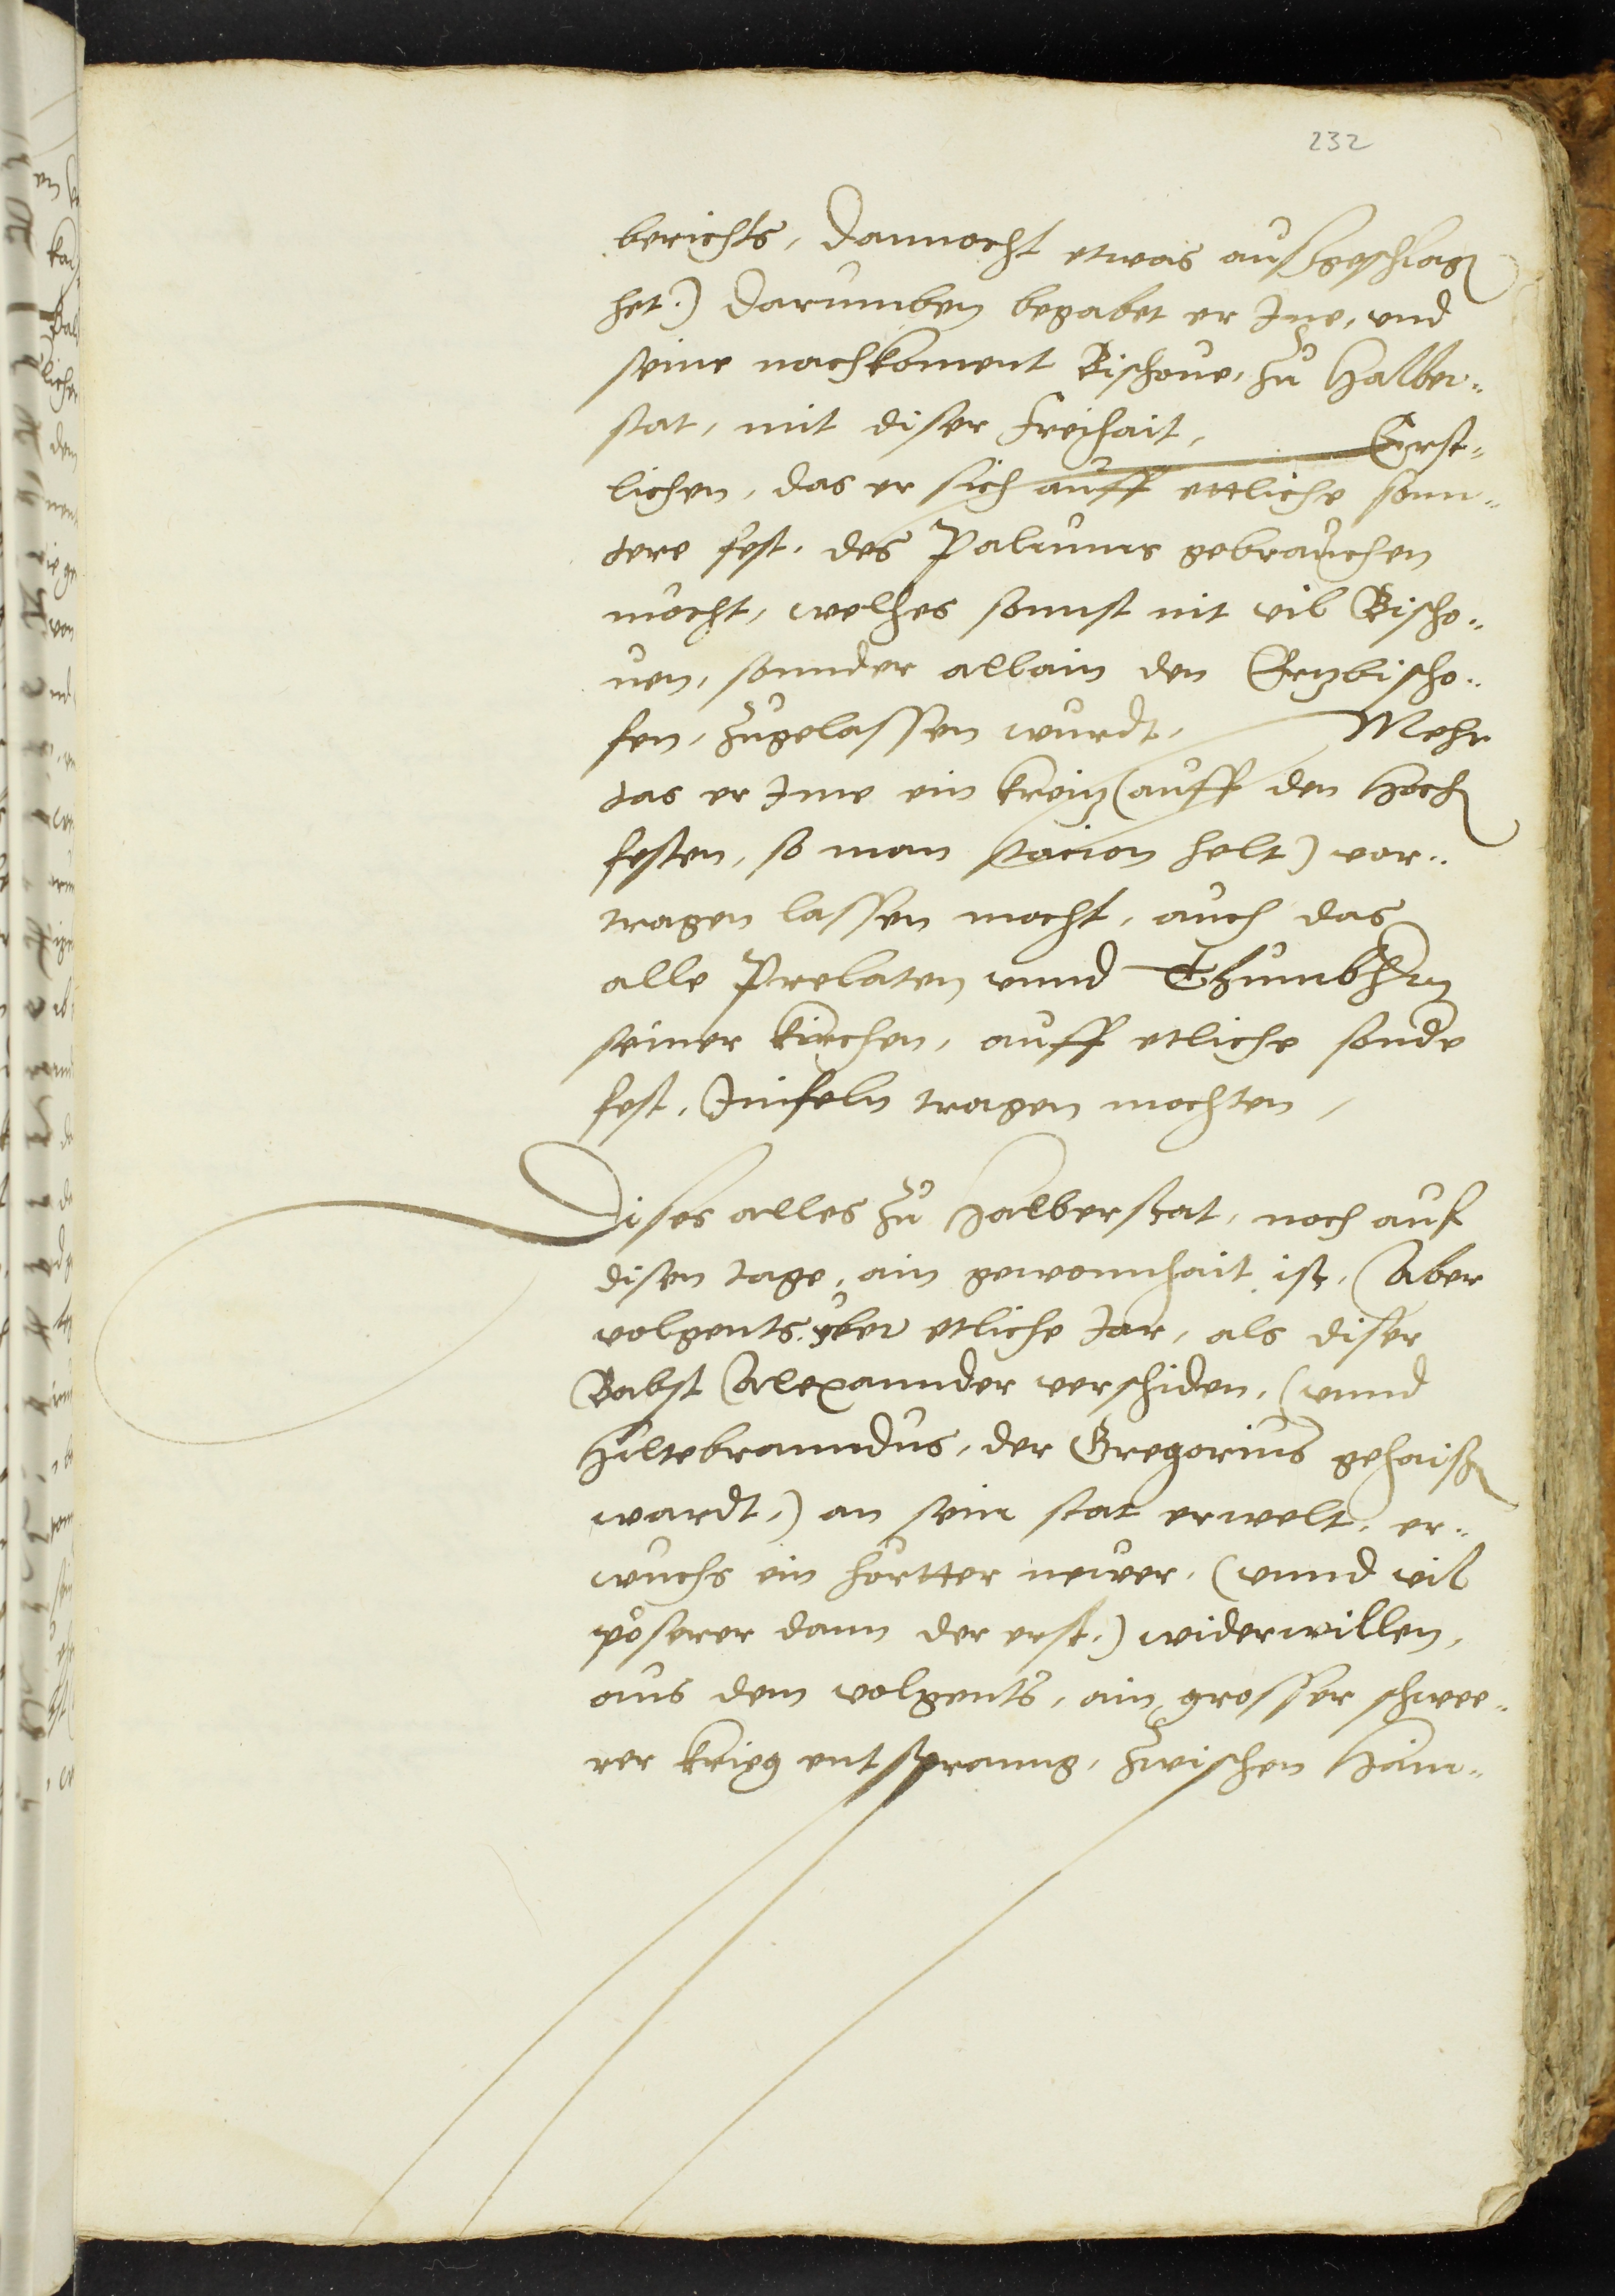 232
berichts, dannocht etwas außgeschlagen
het.) Darumben begabet er Ine, und
seine nachkoment Bischoue, zů Halber¬
stat, mit diser Freihait, Erst¬
lichen, das er sich auff ettliche sonn¬
dere fest, des Paliums gebrauchen
mocht, welhes sonnst nit vil Bischo¬
uen, sonnder allain den Ertzbischo¬
fen, zůgelassen wurdt, Mehr
das er Ime ein kreitz (auff den Hoch
festen, so man stacion helt) vor¬
tragen lassen mocht, auch das
alle Prelaten vnnd Thumbhern
seiner kirchen, auff etliche sonde
fest, Infeln tragen mochten,
Dises alles zů Halberstat, noch auf
disen tage, ain gewonnhait ist, Aber
volgents, yber etliche Jar, als diser
Babst Alexannder verschiden, (vnnd
Hiltebranndus, der Gregorius gehaissen
wardt,) an sein stat erwelt, er¬
wuchs ein hortter newer, (vnnd vil
pöserer dann der erst,) widerwillen,
aus dem volgents, ain grosser schwe¬
rer krieg entspranng, zwischen Hain¬